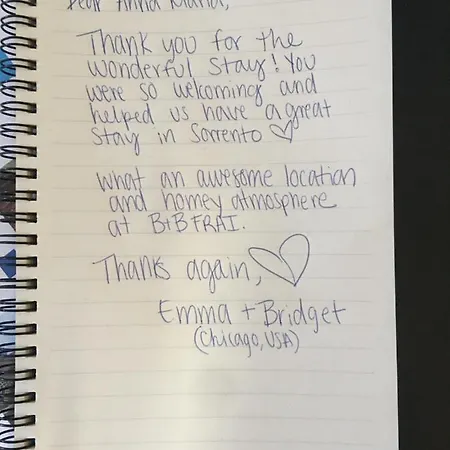 Dear Anna Maria,
Thank you for the
wonderful stay! You
were so welcoming and
helped us have a great
stay in Sorrento ♡
What an awesome location
and homey atmosphere
at B+B FRAI.
Thanks again, ♡
Emma + Bridget
(Chicago, USA)